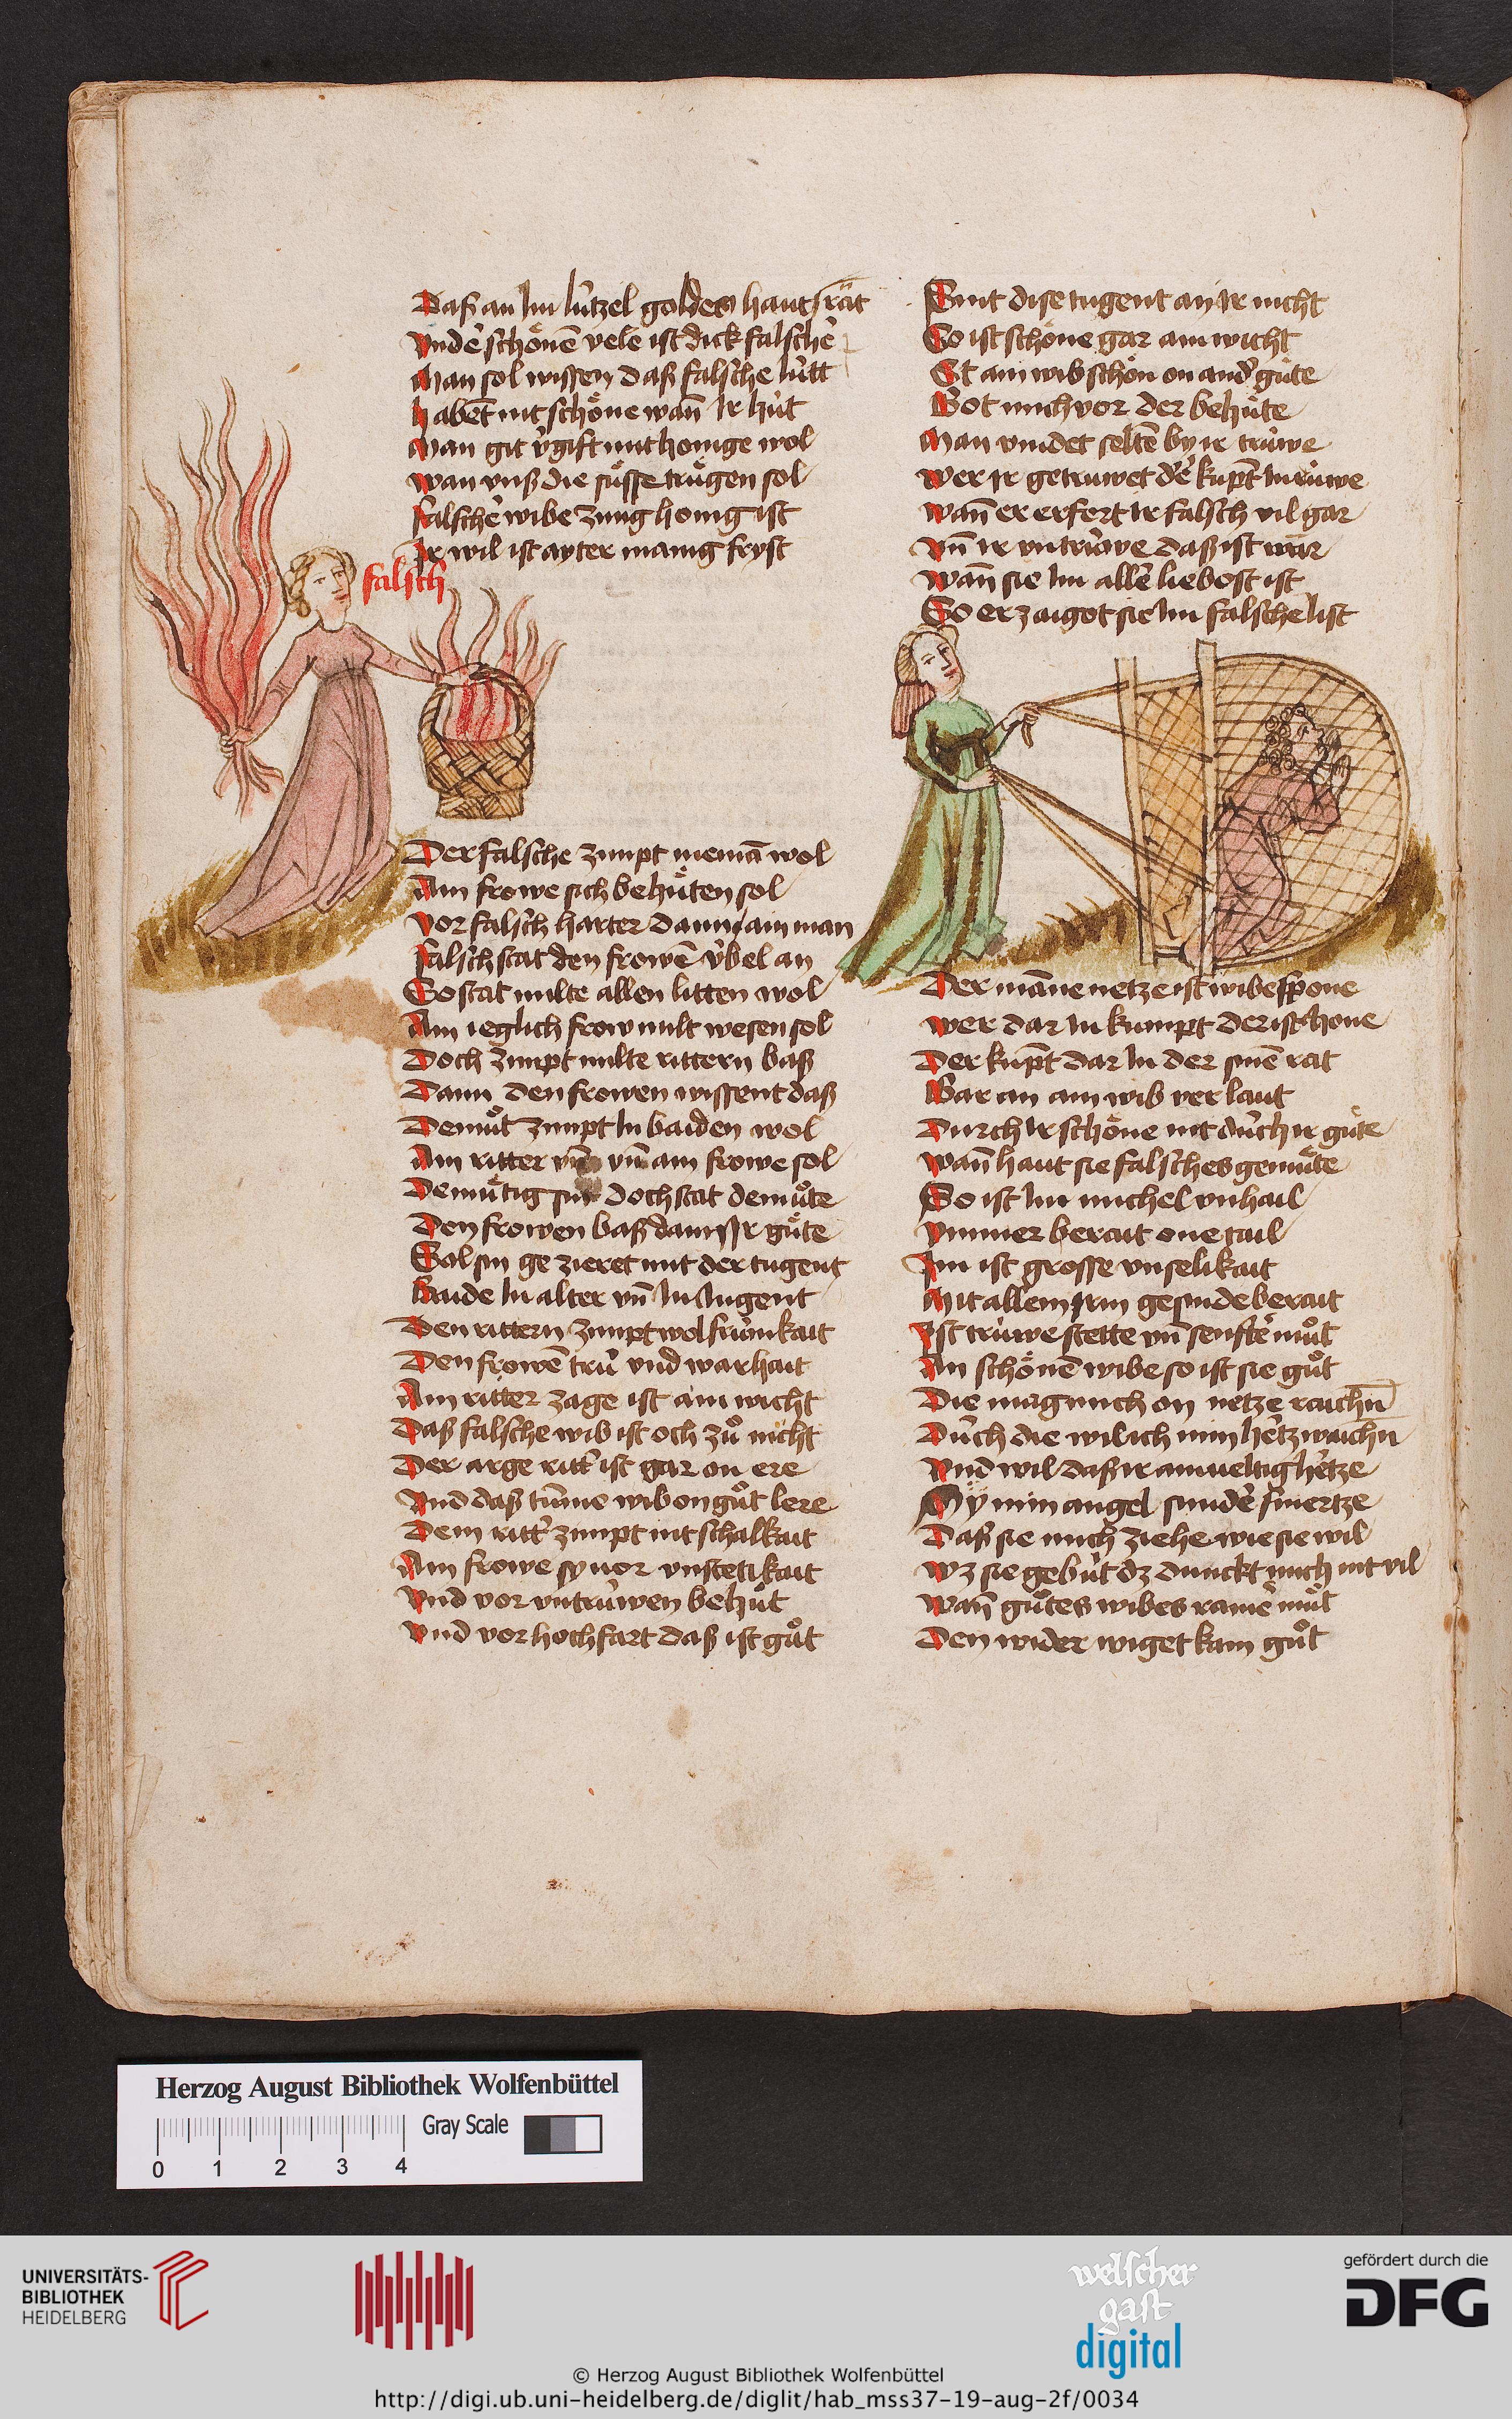 Daß an Im lützel goldes haut rät
Vnd d̉ schönē vele ist dick falsche
Man sol wissen daß falsche lütt
habēt nit schöne wañ Ir hüt
Man git v̉gift mit honge wol
wan vnß die süsse trügen sol
falsche wibe zung honig ist
Ir wil ist ayter manig fryst
falsch
Der falsche zimpt niemā wol
Ain frowe sich behüten sol
vor falsch harter dann ain man
falsch stat den frowē v̉bel an
So stat milte allen litten wol
Ain ieglich frow milt wesen sol
Doch zimpt milte rittern baß
Dann den frowen wissent daß
Demůt zimpt In baiden wol
Ain ritter vñ ain frowe sol
Demütig sin doch stat demůte
Den frowen baß dann Ir güte
Sol sin ge zieret mit der tugent
Baide In alter vñ In Iugent
Den rittern zimpt wol frümkait
Den frowē trü vnd warhait
Ain ritter zage ist ain wicht
Daß falsche wib ist och zů nicht
Der arge ritt̉ ist gar on ere
Vnd daß tūme wib on gůt lere
Dem ritt̉ zimpt nit schalkait
Ain frowe sy vor vnstetikait
Vnd vor vntrüwen behüt
Vnd vor hochfart daß ist gůt
Sint dise tugent an Ir nicht
So ist schöne gar ain wicht
St ain wib schön on and̉ güte
Got mich vor der behüte
Man vindet seltē by ir trüwe
wer Ir getruwet d̉ kupt In rüwe
wañ er erfert Ir falsch vil gar
vñ Ir vntrüwe daß ist war
wañ sie Im alle liebost ist
So erzaigot sie Im falsche list
Der māne netze ist wibes schone
wer dar In kumpt der ist hone
Der kupt dar In der sinē rat
Gar an ain wib ver laut
Durch Ir schöne nit durch ir güte
wañ haut sie falsches gemüte
So ist Im michel vnhail
Ymmer berait one tail
Im ist grosse vnselikait
Mit allem Irm gesinde berait
Ist trüwe stette vñ senfte můt
An schönē wibe so ist sie gůt
Die mag mich on netze vachñ
Durch die wil ich min hertz waichñ
Vnd wil daß ir ainveltig hertze
Sy min angel sunder smertze
Daß sie mich ziehe wie sie wil
wz sie gebüt dz dunckt mich nit vil
wañ gůtes wibes raine můt
Den wider wiget kain gůt
Herzog August Bibliothek Wolfenbüttel
Gray Scale
0 1 2 3 4
UNIVERSITÄTS-
BIBLIOTHEK
HEIDELBERG
welscher
gast
digital
gefördert durch die
DFG
© Herzog August Bibliothek Wolfenbüttel
http://digi.ub.uni-heidelberg.de/diglit/hab_mss37-19-aug-2f/0034